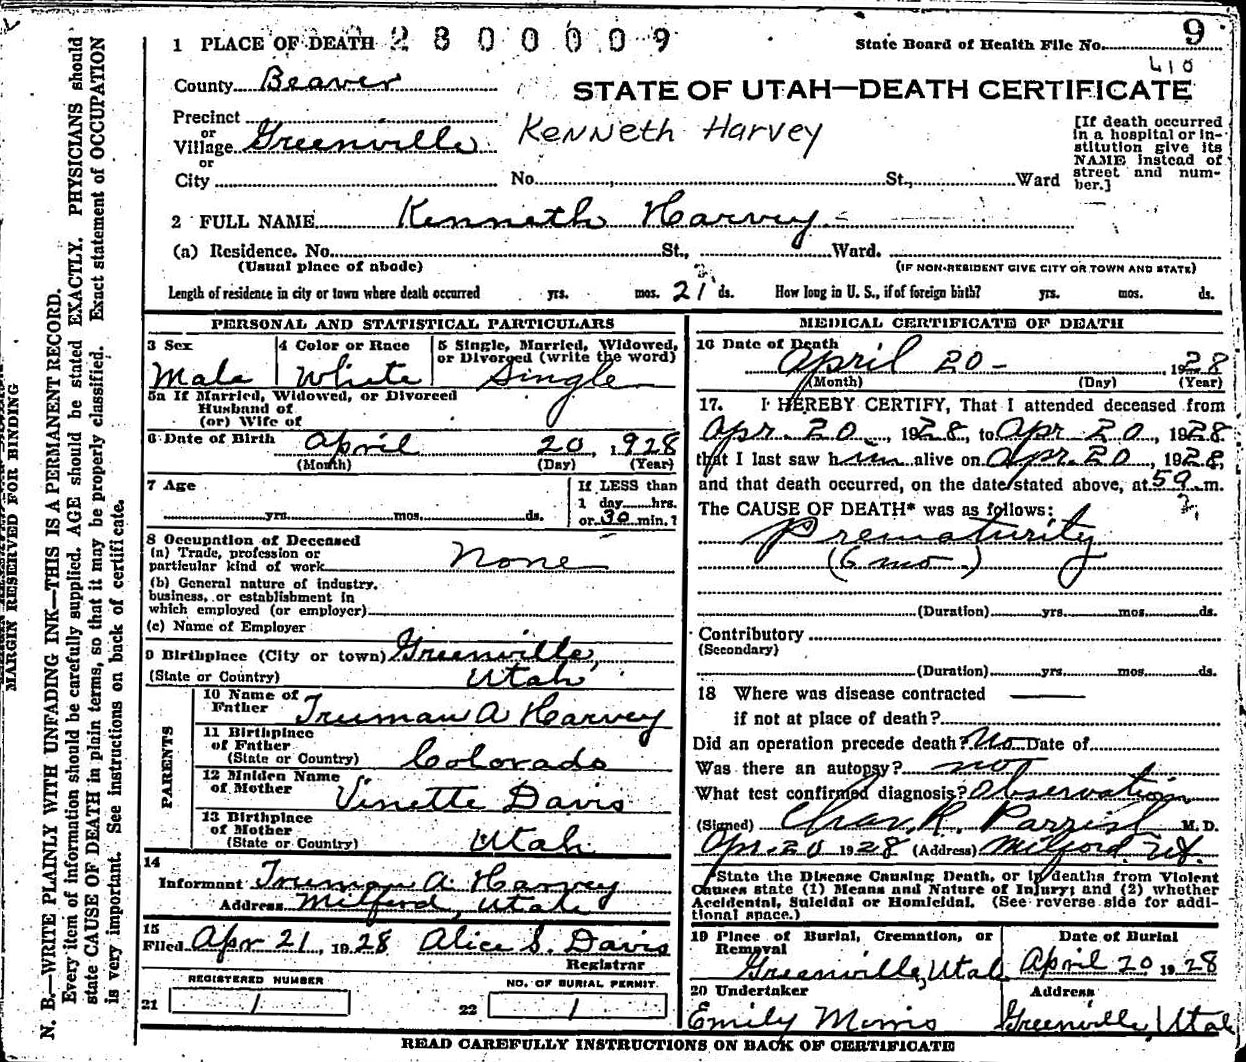 1 PLACE OF DEATH 2800009 State Board of Health File No. 9
410
County Beaver STATE OF UTAH—DEATH CERTIFICATE
Precinct
or
Village Greenville Kenneth Harvey
or
City No. St., Ward
[If death occurred
in a hospital or in-
stitution give its
NAME instead of
street and num-
ber.]
2 FULL NAME Kenneth Harvey
(a) Residence. No. St., Ward.
(Usual place of abode) (IF NON-RESIDENT GIVE CITY OR TOWN AND STATE)
Length of residence in city or town where death occurred yrs. mos. 21 ds. How long in U. S., if of foreign birth? yrs. mos. ds.
PERSONAL AND STATISTICAL PARTICULARS
3 Sex
Male
4 Color or Race
White
5 Single, Married, Widowed,
or Divorced (write the word)
Single
5a If Married, Widowed, or Divorced
Husband of
(or) Wife of
6 Date of Birth April 20, 1928
(Month) (Day) (Year)
7 Age
yrs. mos. ds.
If LESS than
1 day hrs.
or 30 min.?
8 Occupation of Deceased
(a) Trade, profession or
particular kind of work None
(b) General nature of industry,
business, or establishment in
which employed (or employer)
(c) Name of Employer
9 Birthplace (City or town) Greenville,
(State or Country) Utah
PARENTS
10 Name of
Father Truman A Harvey
11 Birthplace
of Father
(State or Country) Colorado
12 Maiden Name
of Mother Vinette Davis
13 Birthplace
of Mother
(State or Country) Utah
14
Informant Truman A. Harvey
Address Milford, Utah
15
Filed Apr 21, 1928 Alice S. Davis
Registrar
REGISTERED NUMBER
21 1
NO. OF BURIAL PERMIT.
22 1
MEDICAL CERTIFICATE OF DEATH
16 Date of Death
April 20 - , 1928
(Month) (Day) (Year)
17. I HEREBY CERTIFY, That I attended deceased from
Apr. 20, 1928, to Apr 20, 1928.
that I last saw him alive on Apr. 20, 1928,
and that death occurred, on the date stated above, at m.
The CAUSE OF DEATH* was as follows:
Prematurity
(6 mo.)
(Duration) yrs. mos. ds.
Contributory
(Secondary)
(Duration) yrs. mos. ds.
18 Where was disease contracted
if not at place of death?
Did an operation precede death? No Date of
Was there an autopsy? not
What test confirmed diagnosis? Observation
(Signed) Chas. R. Parrish M. D.
Apr. 20 1928 (Address) Milford, Ut.
*State the Disease Causing Death, or in deaths from Violent
Causes state (1) Means and Nature of Injury; and (2) whether
Accidental, Suicidal or Homicidal. (See reverse side for addi-
tional space.)
19 Place of Burial, Cremation, or
Removal
Greenville, Utah
Date of Burial
April 20 1928
20 Undertaker
Emily Morris
Address
Greenville Utah
READ CAREFULLY INSTRUCTIONS ON BACK OF CERTIFICATE
MARGIN RESERVED FOR BINDING
N. B.—WRITE PLAINLY WITH UNFADING INK—THIS IS A PERMANENT RECORD.
Every item of information should be carefully supplied. AGE should be stated EXACTLY. PHYSICIANS should
state CAUSE OF DEATH in plain terms, so that it may be properly classified. Exact statement of OCCUPATION
is very important. See instructions on back of certificate.